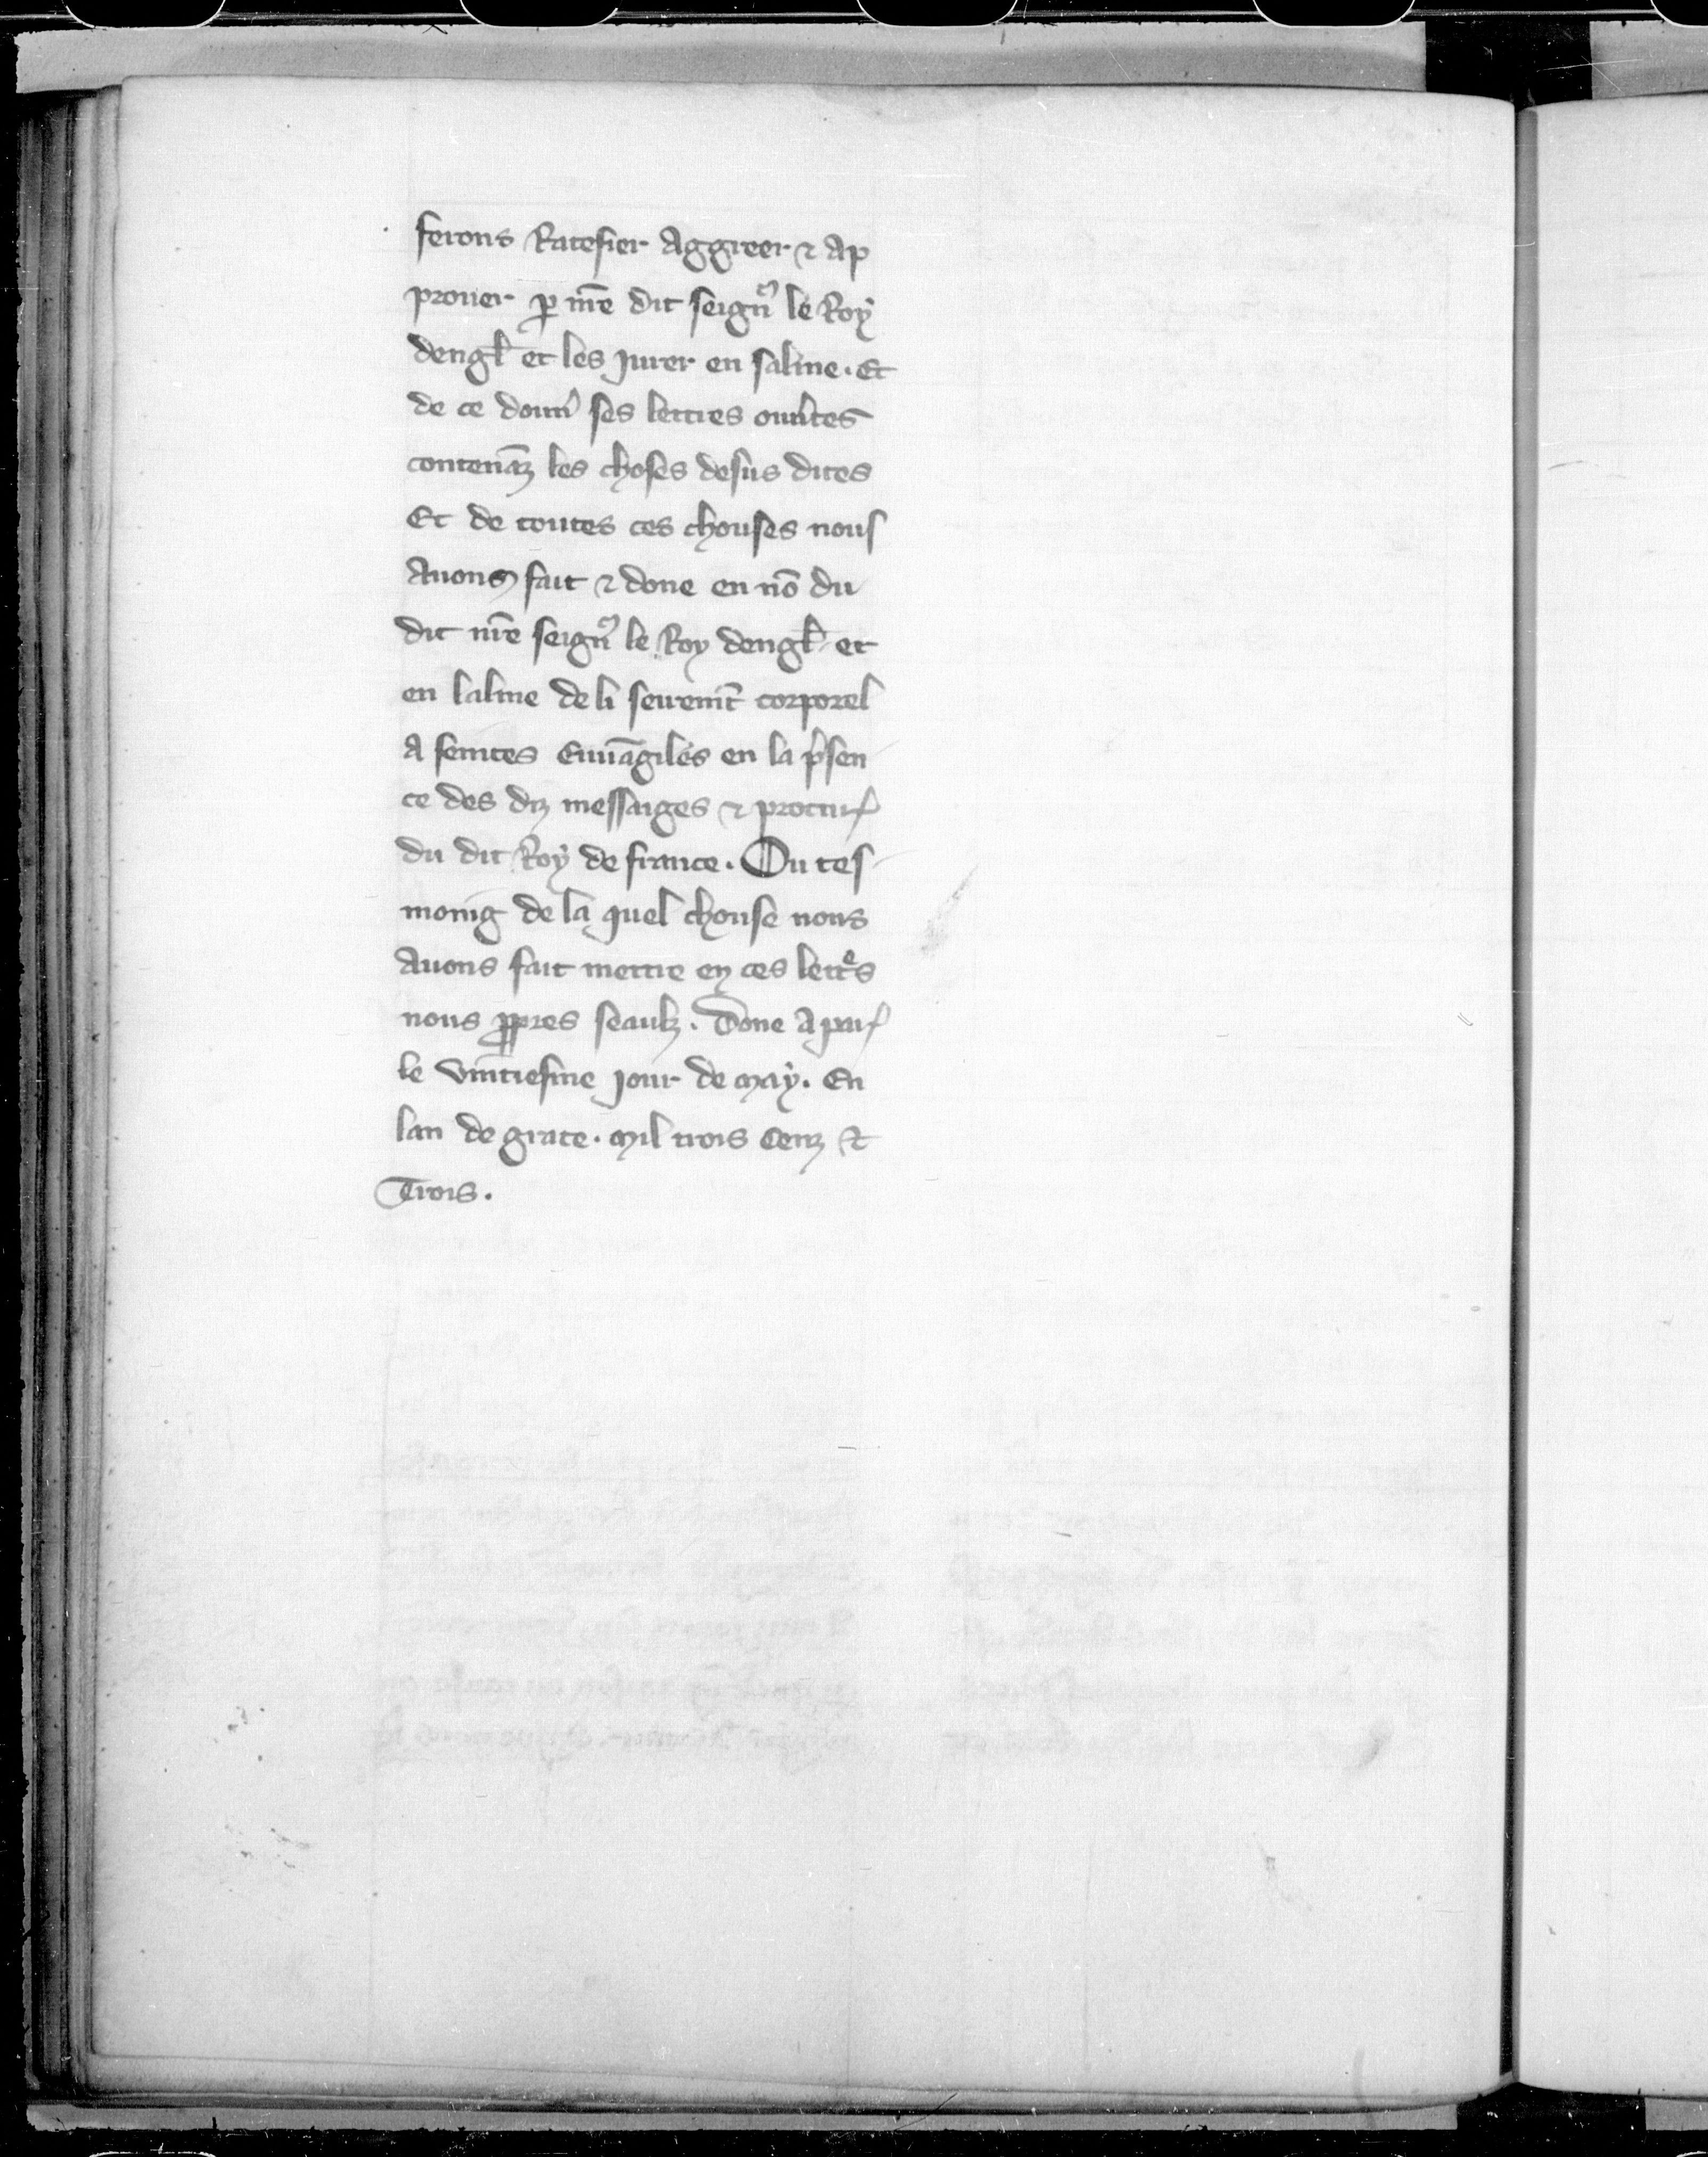 ferons Ratefier Aggreer ⁊ Ap
prouer ꝑ nr̄e dit seign͛ le Roẏ
dengł et les jurer en salme. Et
de ce donn͛ ses lettres ouu͛tes
contenāz les choses desus dites
Et de toutes ces chouses nous
Auons fait ⁊ done en nō du
dit nr̄e seign͛ le Roy dengł et
en lalme de li serem̄t corporel
A seintes Euuāgiles en la p͛sen
ce des diz messaiges ⁊ procur͛
du dit Roẏ de france. Ou tes
moing de la quel chouse nous
Auons fait mettre en ces lettͤs
nous ꝓpres seaulz. Done A par͛
le vintiesme jour de maẏ. En
lan de grace. mil trois Cenz Et
Trois.